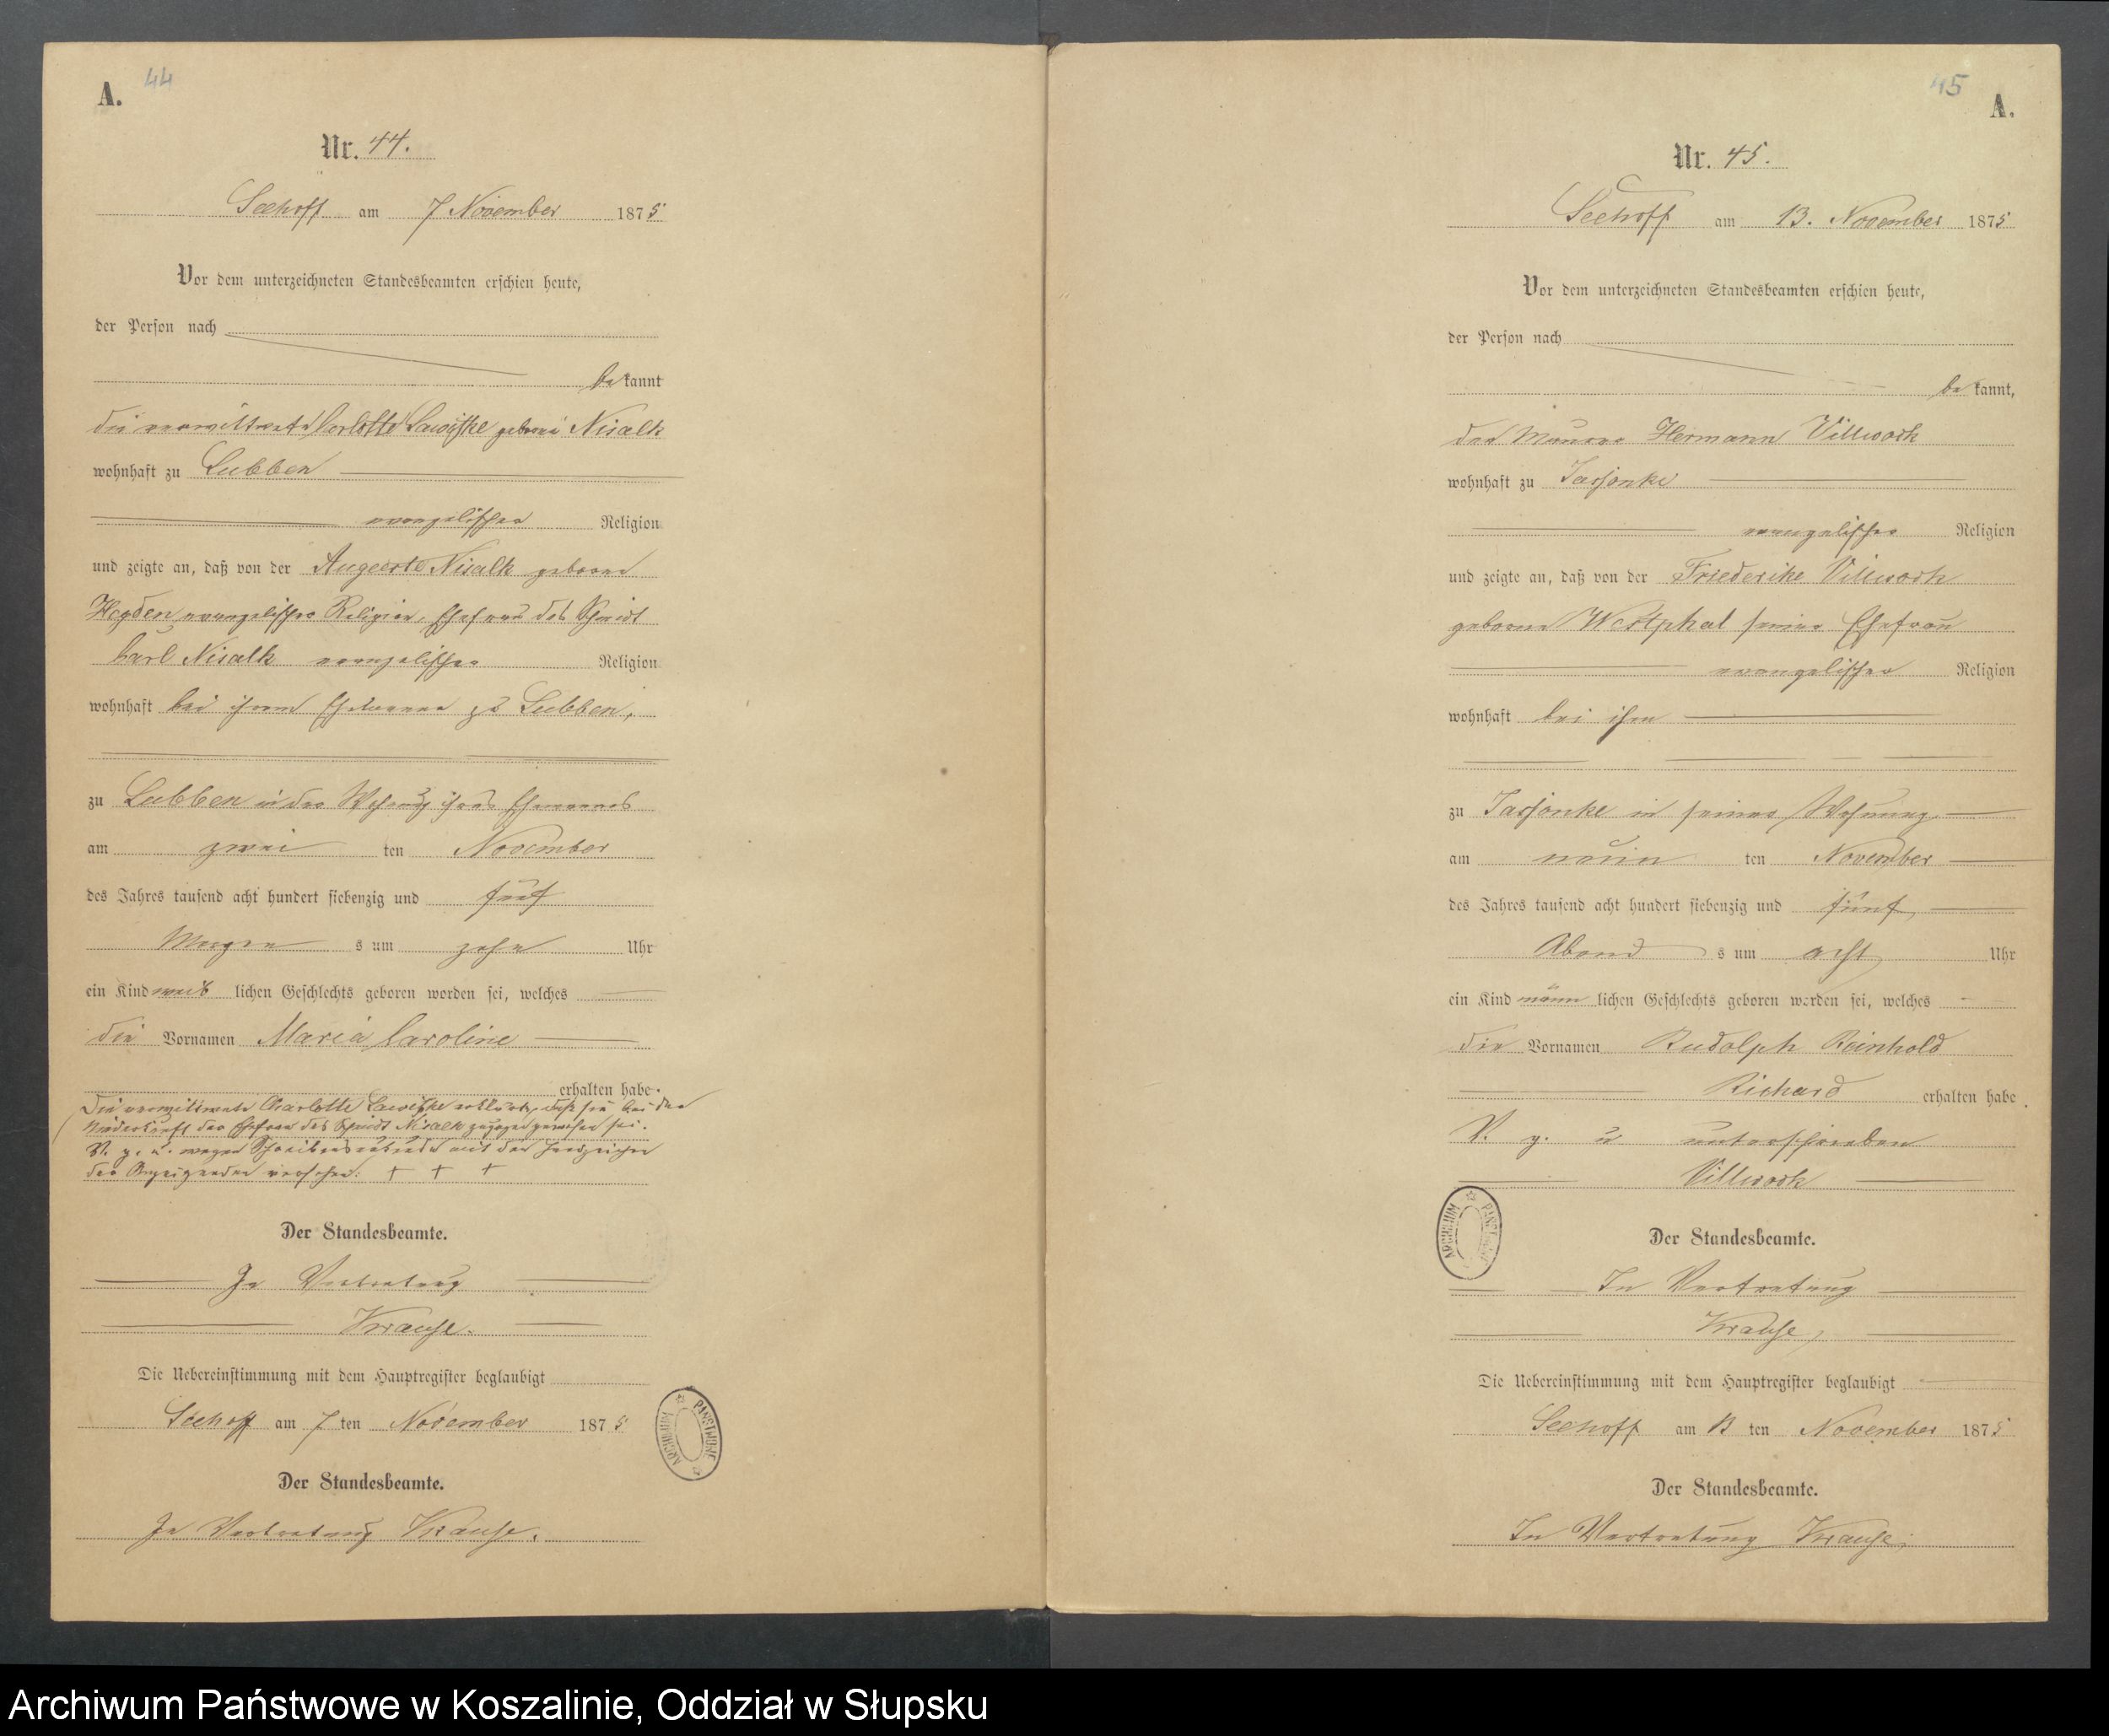 A. 44
Nr. 44.
Seehoff am 7 November 1875
Vor dem unterzeichneten Standesbeamten erschien heute,
der Person nach
bekannt
die verwittwete Carlotte Lawischke geborne Nisalk
wohnhaft zu Lubben
evangelischer Religion
und zeigte an, daß von der Auguste Nisalk geborne
Heyden evangelischer Religion, Ehefrau des Schmidt
Carl Nisalk evangelischer Religion
wohnhaft bei ihrem Ehemanne zu Lubben,
zu Lubben in der Wohnung ihres Ehemannes
am zwei ten November
des Jahres tausend acht hundert siebenzig und fünf
Morgen s um zehn Uhr
ein Kind weib lichen Geschlechts geboren worden sei, welches
die Vornamen Maria Caroline
erhalten habe.
Die verwittwete Charlotte erklärte, daß sie bei der
Niederkunft der Ehefrau des Schmidt Nisalk zugegen gewesen sei.
V. g. u. wegen Schreibensunkunde mit den Handzeichen
der Anzeigenden versehen: † † †
Der Standesbeamte.
In Vertretung
Krause.
Die Uebereinstimmung mit dem Hauptregister beglaubigt
Seehoff am 7 ten November 1875
Der Standesbeamte.
In Vertretung Krause.
ARCHIWUM PAŃSTWOWE
45 A.
Nr. 45.
Seehoff am 13. November 1875
Vor dem unterzeichneten Standesbeamten erschien heute,
der Person nach
bekannt,
der Maurer Hermann Villwock
wohnhaft zu Jassonke
evangelischer Religion
und zeigte an, daß von der Friederike Villwock
geborne Westphal seiner Ehefrau
evangelischer Religion
wohnhaft bei ihm
zu Jassonke in seiner Wohnung
am neun ten November
des Jahres tausend acht hundert siebenzig und fünf
Abend s um acht Uhr
ein Kind männ lichen Geschlechts geboren worden sei, welches
die Vornamen Rudolph Reinhold
Richard erhalten habe.
V. g. u unterschrieben
Villwock
ARCHIWUM PAŃSTWOWE
Der Standesbeamte.
In Vertretung
Krause,
Die Uebereinstimmung mit dem Hauptregister beglaubigt
Seehoff am 13 ten November 1875
Der Standesbeamte.
In Vertretung Krause,
Archiwum Państwowe w Koszalinie, Oddział w Słupsku